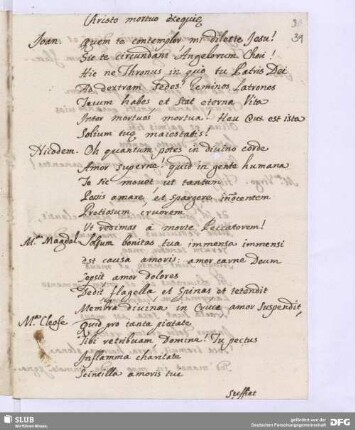 Christo mortuo exequię
39
Joan. Quem te contemplor mi dilecte Jesu!
Sic te circundans Angelorum Chori!
Hic ne Thronus in quo tu Patris Dei
Ad dexteram sedes! geminos Latrones
Tecum habes et stat eterna Vita
Inter mortuos mortua! Heu Quę est ista
Solium tuę maiestatis!
Nicodem. Oh quantum potes in divino corde
Amor superne! quid in gente humana
Te sic movet ut tantum
Possis amare, et spargere innocentem
Pretiosum cruorem
Ut redimas à morte Peccatorem!
M.a Magdal. Solum bonitas tua immensa immensi
Est causa amoris; amor carne Deum
Cepit amor dolores
Dedit flagella et spinas et tetendit
Membra divina in Cruce amor suspendit,
M.a Cleofe. Quid pro tanta pietate
Tibi retribuam Domine! Tu pectus
Inflamma charitate
Scintilla amoris tui
Sufflet
SLUB
Wir führen Wissen.
gefördert von der
Deutschen Forschungsgemeinschaft
DFG